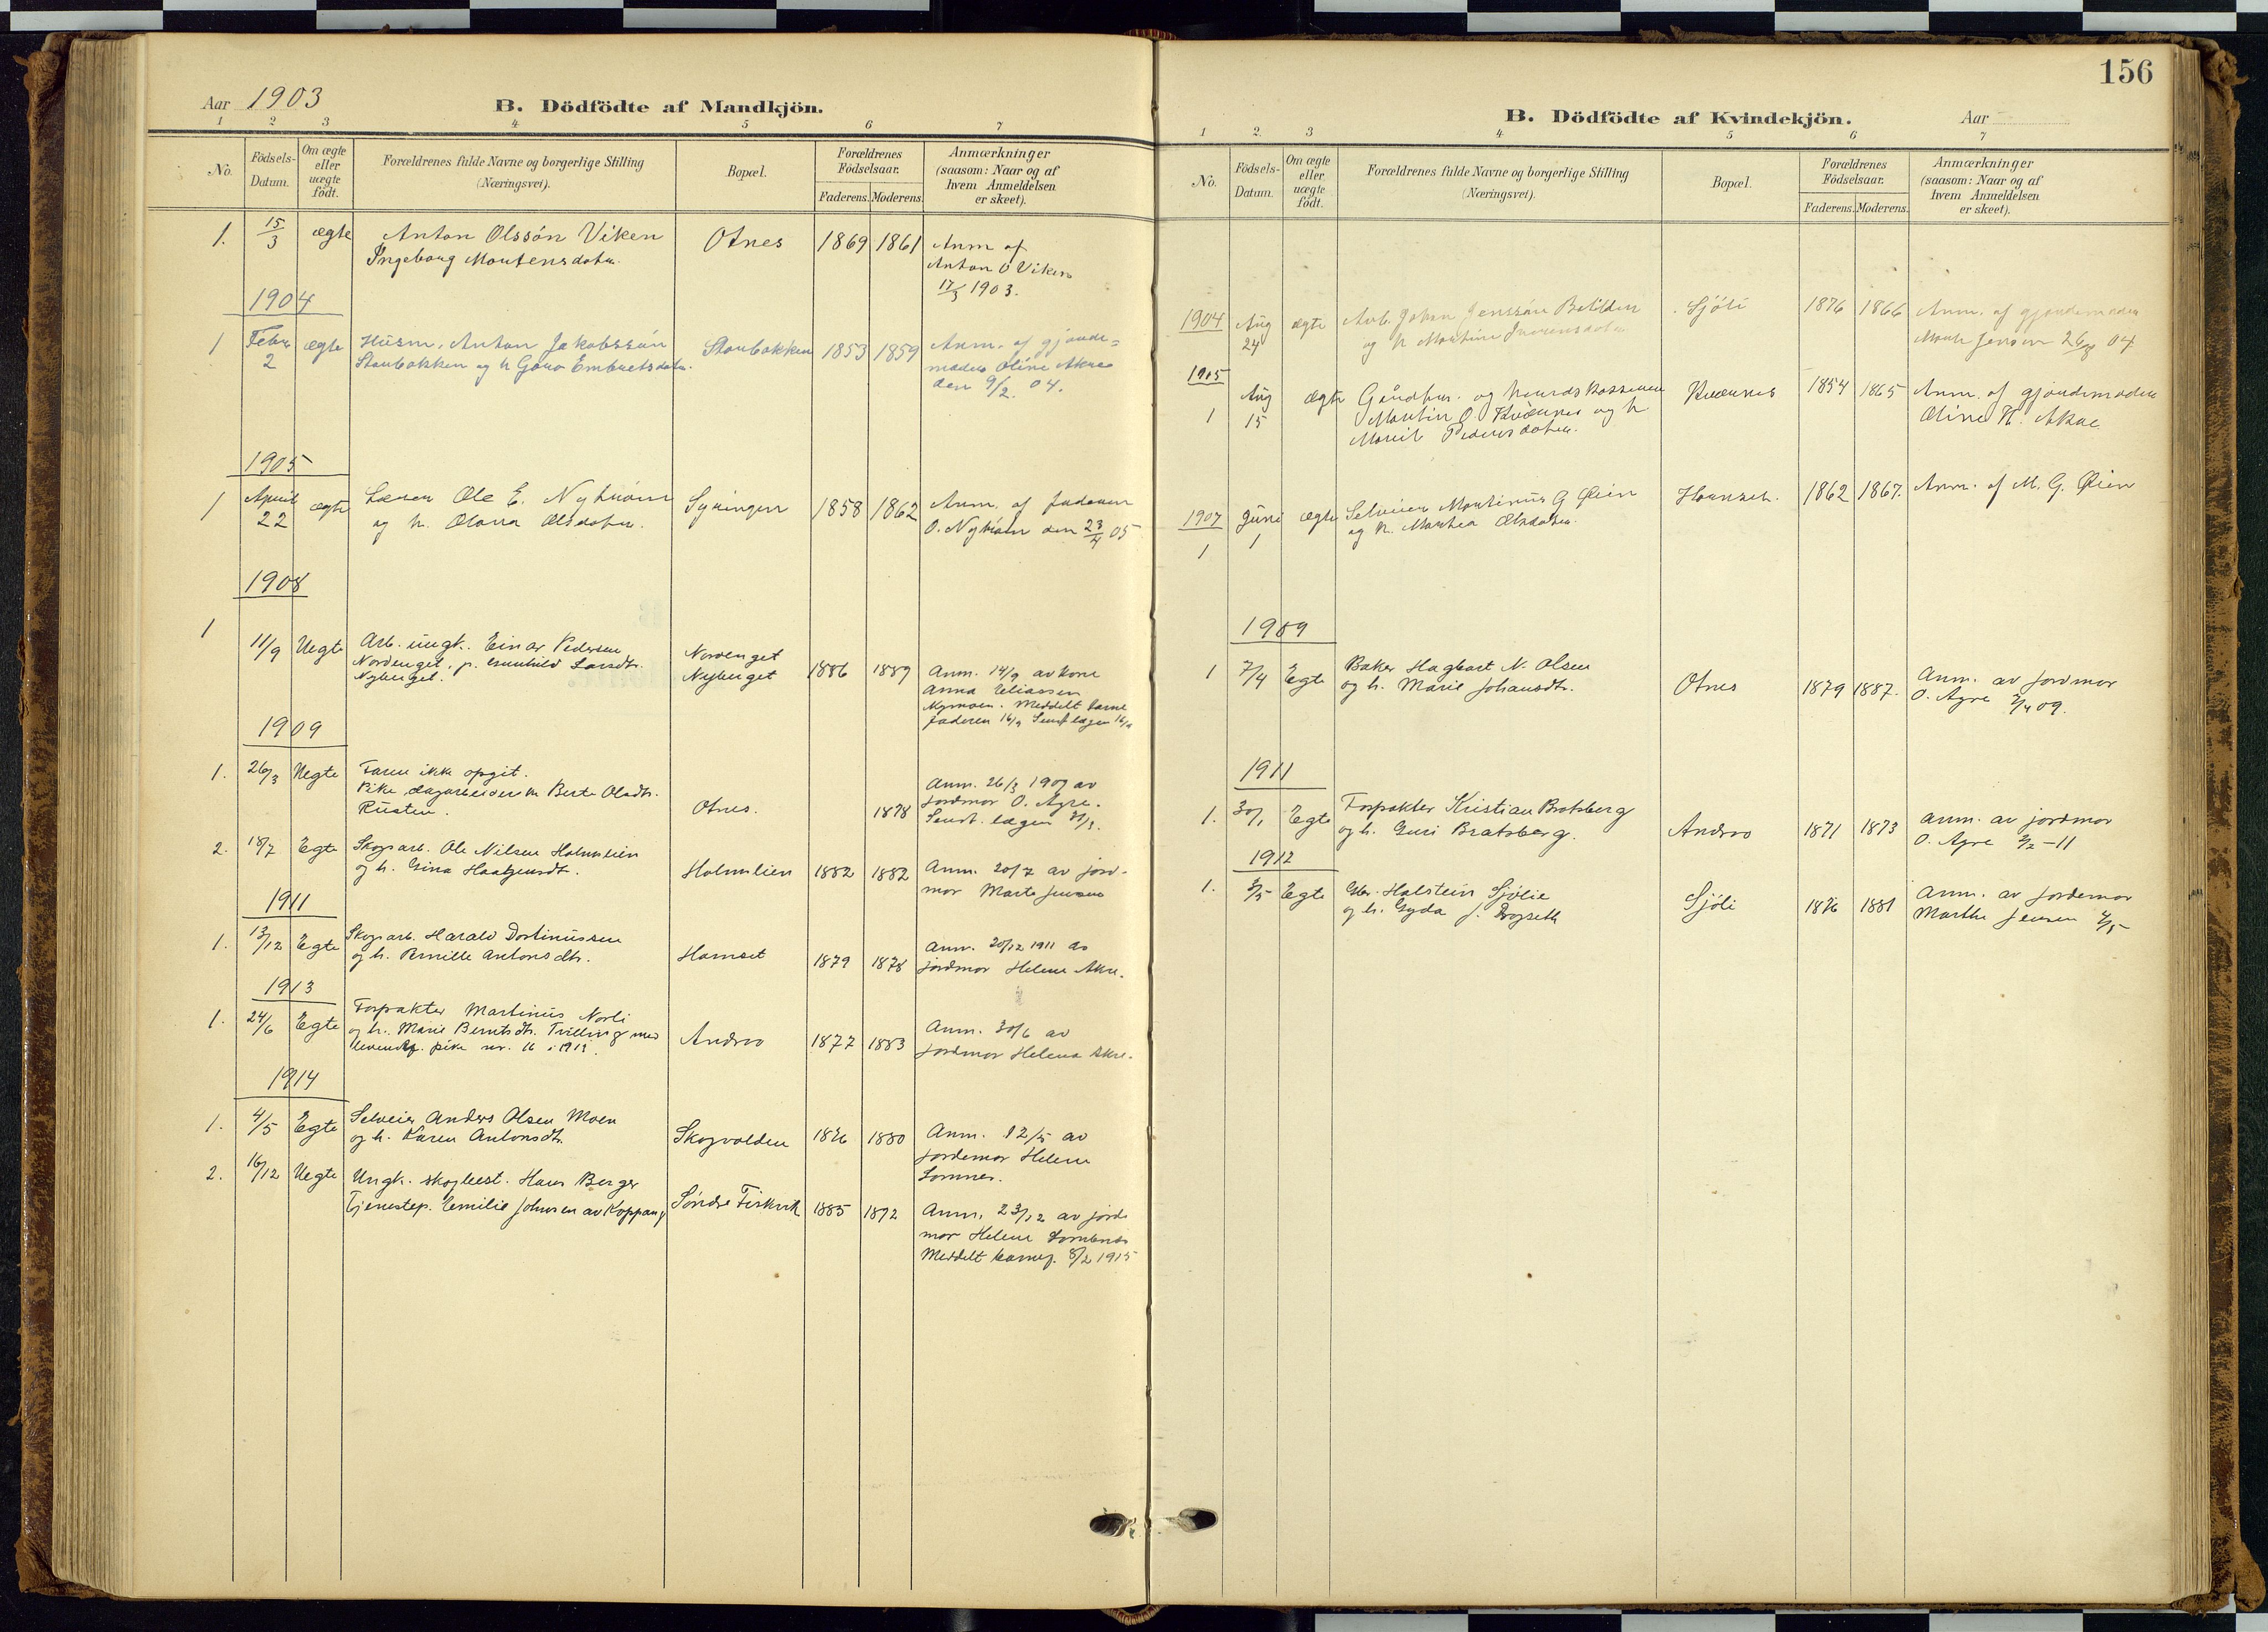 Aar 1903
B. Dödfödte af Mandkjön.
1 2 3 4 5 6 7
No.
Födsels-
Datum.
Om ægte
eller
uægte
födt.
Forældrenes fulde Navne og borgerlige Stilling
(Næringsvei).
Bopæl.
Forældrenes
Födselsaar.
Faderens. Moderens.
Anmærkninger
(saasom: Naar og af
hvem Anmeldelsen
er skeet).
1. 15/3 ægte Anton Olssön Viken Otnes 1869 1861 Anm af
Ingeborg Mortensdotr. Anton O Viken
17/3 1903.
1904
1 Febr ægte Husm. Anton Jakobssön Storbakken 1853 1859 Anm. af gjorde-
2 Storbakken og h Goro Embretsdotr. moder Oline Akre
den 9/2 04.
1905
1 April ægte Lærer Ole E. Nyström Syringen 1858 1862 Anm. af faderen
22 og h. Olava Olsdotr. O. Nyström den 23/4 05
1908
1
11/9 Uegte Arb. ungk. Einar Pedersen Nordenget
Nordenget, p. Gunhild Larsdtr. Nyberget 1886 1889 Anm. 14/9 av kone
Nyberget. Anna Eliassen
Nymoen. Meddelt barne
faderen 16/9 Sendt lægen 16/9
1909
1. 26/3 Uegte Faren ikke opgit.
Pike dagarbeiderske Berte Olsdtr. Anm. 26/3 1909 av
Rusten. Otnes. 1878 jordmor O. Agre.
Sendt lægen 31/3.
2. 18/7 Egte Skogsarb. Ole Nilsen Holmlien
og h. Gina Haagensdt. Holmlien 1882 1882 Anm. 20/7 av jord-
mor Marte Jensen
1911
1. 13/12 Egte Skogsarb. Harald Dortinussen
og h. Pernille Antonsdtr. Harnset 1879 1878 Anm. 20/12 1911 av
jordmor Helene Akre.
1913
1. 24/6 Egte Forpakter Martinus Norli
og h. Marie Berntsdtr. Tvilling med Andraa 1877 1883 Anm. 30/6 av
levendef. pike nr. 16 i 1913. jordmor Helene Akre.
1914
1. 4/5 Egte Selveier Anders Olsen Moen
og h. Karen Antonsdtr. Skogvolden 1876 1880 Anm. 12/5 av
jordemor Helene
Lomnes.
2. 16/12 Uegte Ungk. skogbest. Hans Berger
Tjenestep. Emilie Johnsen av Koppang Söndre Fiskvik 1885 1892 Anm. 23/12 av jorde
mor Helene Lomnes
Meddelt barnef. 8/2 1915
156
B. Dödfödte af Kvindekjön. Aar
1 2. 3 4 5 6 7
No.
Födsels-
Datum.
Om ægte
eller
uægte
födt.
Forældrenes fulde Navne og borgerlige Stilling
(Næringsvei).
Bopæl.
Forældrenes
Födselsaar.
Faderens. Moderens.
Anmærkninger
(saasom: Naar og af
hvem Anmeldelsen
er skeet).
1904 Aug ægte Arb. Johan Jenssön Sjöli 1876 1866 Anm. af gjordemoder
24 og h Martine Iversdotr. Marte Jensen 26/8 04
1905
Aug ægte Gaardbr. og Kvernes 1854 1865 Anm. af gjordemoder
1 15 Martin O. Kvernes og h Oline H. Akre
Marit Pedersdotr.
1907 Juni ægte Selveier Martinus G Öien Harnset. 1862 1867. Anm. af M. G. Öien
1 1 og h. Marthea Olsdotr.
1909
1 7/4 Egte Baker Hagbart N. Olsen
og h. Marie Johansdtr. Otnes 1879 1887. Anm. av jordmor
O. Agre 7/4 09.
1911
1. 30/1 Egte Forpakter Kristian Bratsberg
og h. Guri Bratsberg. Andraa 1871 1873 Anm. av jordmor
O. Agre 2/2-11
1912
1. 2/5 Egte Gbr. Halstein Sjölie
og h. Gyda J. Drogseth Sjöli 1876 1881 Anm. av jordemor
Marthe Jensen 2/5